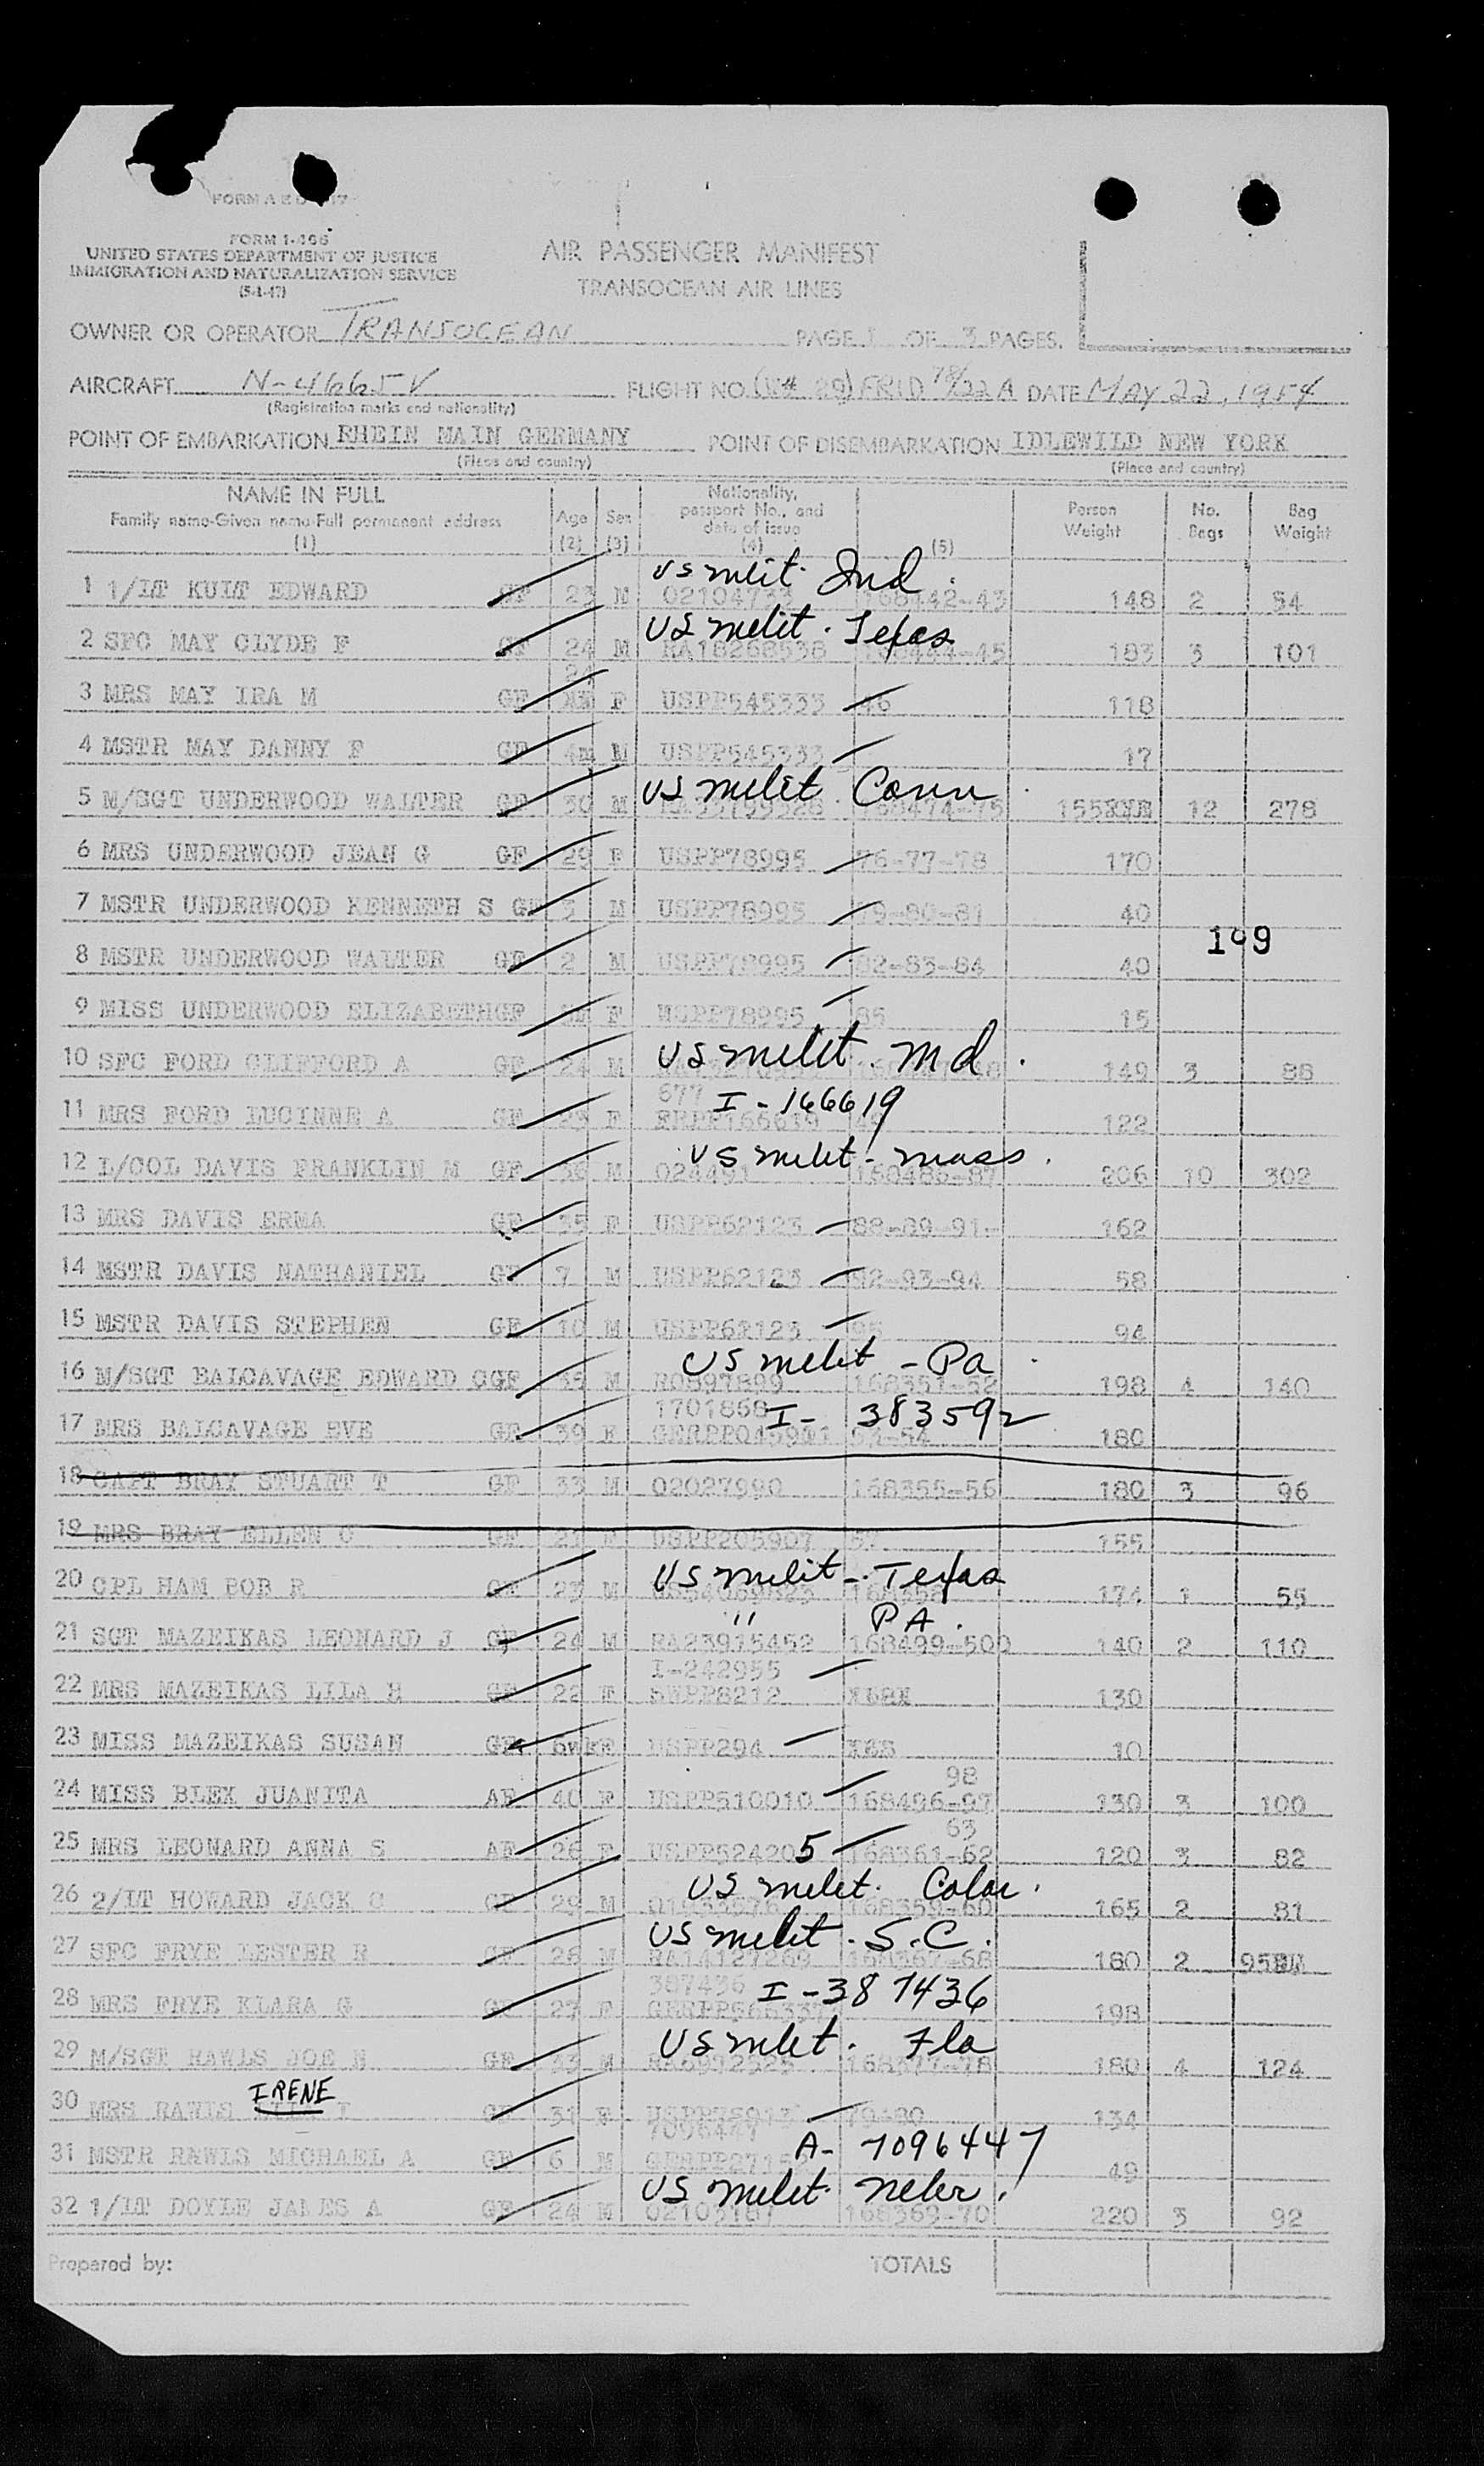 FORM 1-466
UNITED STATES DEPARTMENT OF JUSTICE
IMMIGRATION AND NATURALIZATION SERVICE
(5-1-47)
AIR PASSENGER MANIFEST
TRANSOCEAN AIR LINES
OWNER OR OPERATOR TRANSOCEAN PAGE 1 OF 3 PAGES.
AIRCRAFT N-4665V FLIGHT NO. DATE MAY 22, 1954
(Registration marks and nationality)
POINT OF EMBARKATION RHEIN MAIN GERMANY POINT OF DISEMBARKATION IDLEWILD NEW YORK
(Place and country) (Place and country)
NAME IN FULL
Family name-Given name-Full permanent address
(1)
Age (2) Sex (3) Nationality, passport No., and date of issue (4) (5) Person Weight No. Bags Bag Weight
US milit. Ind.
1 1/LT KUIT EDWARD GF 23 M 168442-43 148 2 54
US milit. Texas
2 SFC MAY CLYDE F GF 24 M RA18268538 183 3 101
24
3 MRS MAY IRA M GF F USPP545333 46 118
4 MSTR MAY DANNY F GF 4m M USPP545333 17
US milit Conn.
5 M/SGT UNDERWOOD WALTER GF 30 M 168474-75 155 12 278
6 MRS UNDERWOOD JEAN G GF 29 F USPP78995 76-77-78 170
7 MSTR UNDERWOOD KENNETH S GF 3 M USPP78995 79-80-81 40
109
8 MSTR UNDERWOOD WALTER GF 2 M USPP78995 82-83-84 40
9 MISS UNDERWOOD ELIZABETH GF F USPP78995 85 15
US milit. Md.
10 SFC FORD CLIFFORD A GF 24 M 149 3 88
677 I-166619
11 MRS FORD LUCINNE A GF 23 F 122
US milit - mass.
12 L/COL DAVIS FRANKLIN M GF 36 M 024491 206 10 302
13 MRS DAVIS ERMA GF 35 F USPP62123 88-89-91- 162
14 MSTR DAVIS NATHANIEL GF 7 M USPP62123 92-93-94 58
15 MSTR DAVIS STEPHEN GF 10 M USPP62123 95 94
US milit - Pa.
16 M/SGT BALCAVAGE EDWARD C GF 35 M R0897899 168351-52 198 4 140
1701868 I- 383592
17 MRS BALCAVAGE EVE GF 39 F 53-54 180
18 CAPT BRAY STUART T GF 33 M 02027990 168355-56 180 3 96
19 MRS BRAY ELLEN C GF 21 F USPP205907 57 155
US milit - Texas
20 CPL HAM BOB R GF 23 M 168358 174 1 55
" PA.
21 SGT MAZEIKAS LEONARD J GF 24 M RA23915452 168499-500 140 2 110
I-242955
22 MRS MAZEIKAS LILA H GF 22 F SWPP8212 130
23 MISS MAZEIKAS SUSAN GF 6wk F USPP294 10
98
24 MISS BLEX JUANITA AF 40 F USPP510010 168496-97 130 3 100
63
25 MRS LEONARD ANNA S AF 26 F USPP524205 168361-62 120 3 82
US milit. Color.
26 2/LT HOWARD JACK C GF 29 M 168359-60 165 2 81
US milit. S.C.
27 SFC FRYE LESTER R GF 28 M RA14127269 168367-68 180 2 95
387436 I-387436
28 MRS FRYE KLARA G GF 27 F 198
US milit. Fla
29 M/SGT RAWLS JOE N GF 33 M 168377-78 180 4 124
IRENE
30 MRS RAWLS T GF 31 F 79-80 134
7096447 A- 7096447
31 MSTR RAWLS MICHAEL A GF 6 M 49
US milit. Nebr.
32 1/LT DOYLE JAMES A GF 24 M 02103187 168369-70 220 3 92
Prepared by: TOTALS